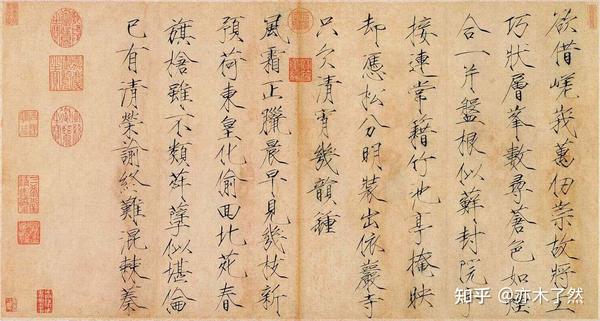 欲借嵯峩萬仞崇故將工
巧狀層峯數尋蒼色如煙
合一片盤根似蘚封院宇
接連常藉竹池亭掩映
却憑松分明裝出依巖寺
只欠清宵幾韻鍾
風霜正臘晨早見幾枝新
預荷東皇化偷回北苑春
旗槍雖不類荈孽似堪倫
已有清榮諭終難混棘蓁
知乎 @亦木了然